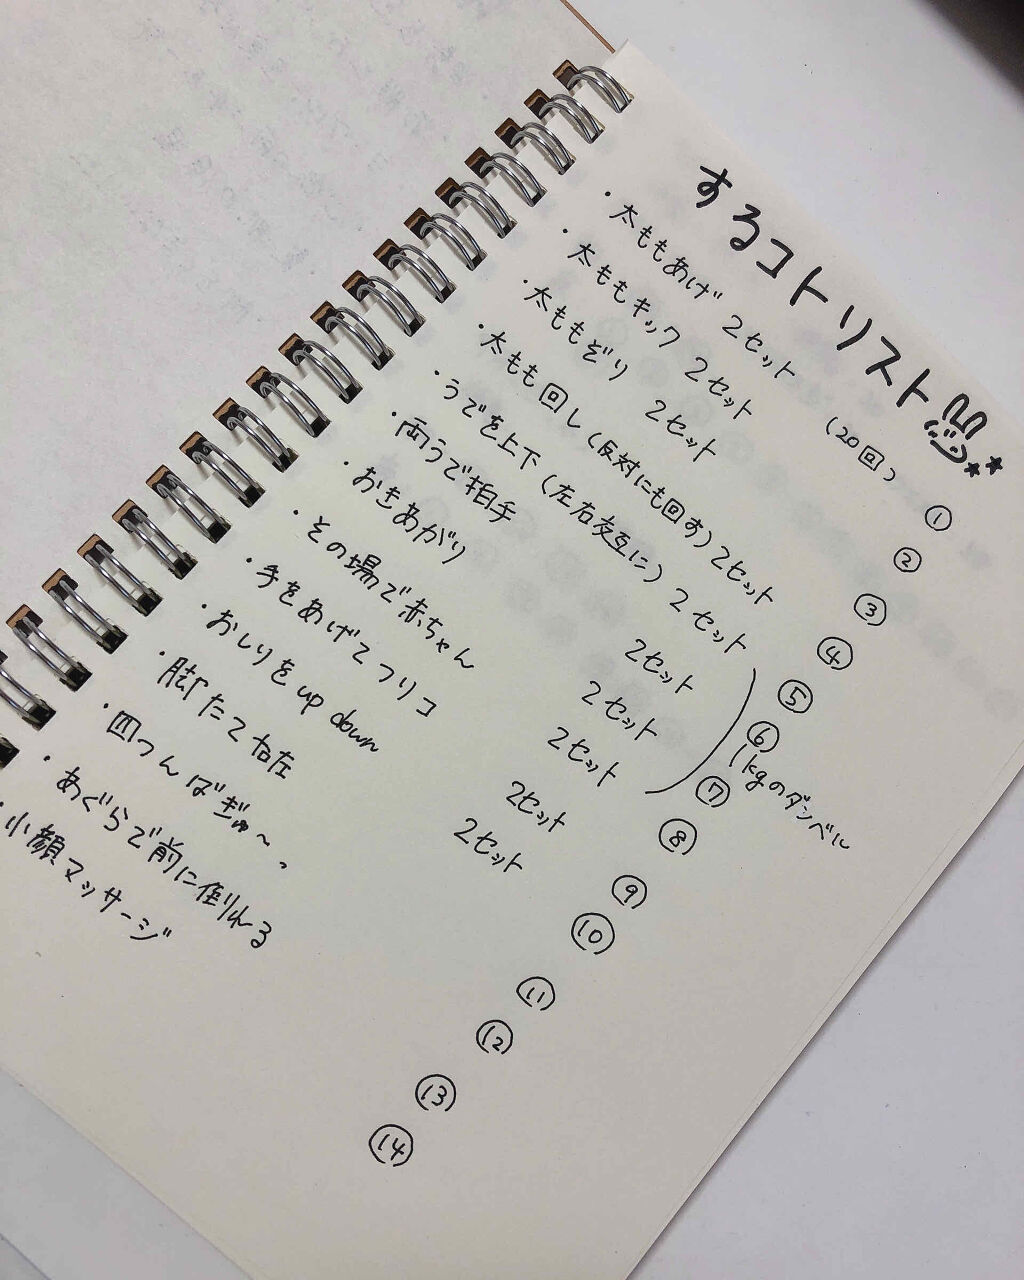 するコトリスト
・太ももあげ 2セット (20回) ①
・太ももキック 2セット ②
・太ももぞり 2セット ③
・太もも回し(反対にも回す) 2セット ④
・うでを上下(左右交互に) 2セット ⑤
・両うで拍手 2セット ⑥
1kgのダンベル
・おきあがり 2セット ⑦
・その場で赤ちゃん 2セット ⑧
・手をあげてフリコ 2セット ⑨
・おしりをup down 2セット ⑩
・脚たて右左 ⑪
・四つんばぎゅ〜。 ⑫
・あぐらで前に倒れる ⑬
・小顔マッサージ ⑭